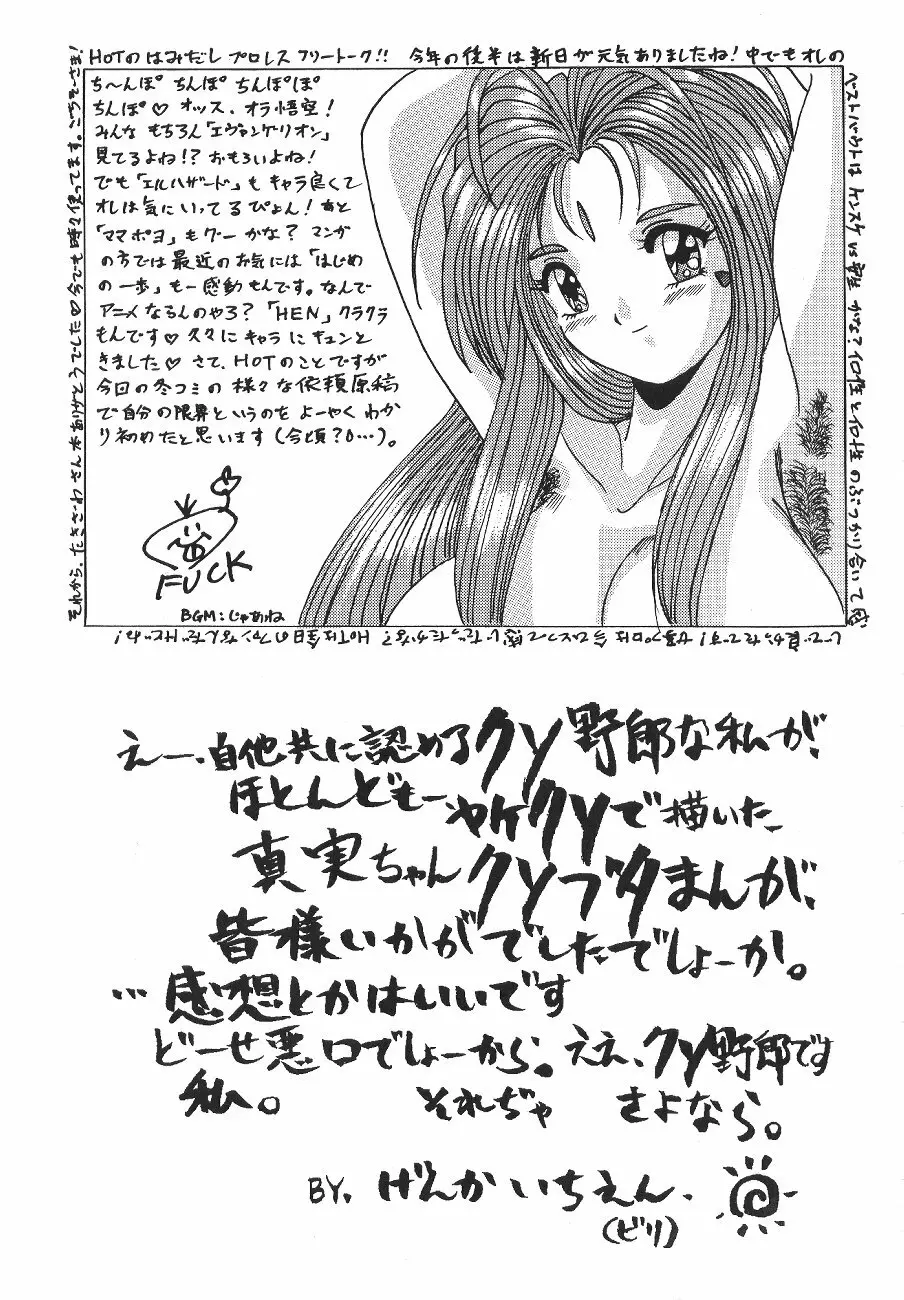 HOTのはみだしプロレスフリートーク!! 今年の後半は新日が元気ありましたね!中でもオレの
ベストバウトは
かな?
のぶつかり合いって
HOTは
それから、たきざわさん
ありがとうでした♡今でも時々使ってます。ごちそーさま!
ち〜んぽ ちんぽ ちんぽぽ
ちんぽ♡ オッス、オラ悟空!
みんな もちろん「エヴァンゲリオン」
見てるよね!? おもろいよね!
でも「エルハザード」もキャラ良くて
オレは気にいってるぴょん!あと
「ママポヨ」もグーかな? マンガ
の方では最近のお気には「はじめ
の一歩」も一感動もんです。なんで
アニメなるんのやろ?「HEN」クラクラ
もんです♡久々にキャラにキュンと
きました♡ さて、HOTのことですが
今回の冬コミの様々な依頼原稿
で自分の限界というのをよーやくわか
り初めたと思います(今頃?0…)。
FUCK
BGM:じゃあね
えー、自他共に認めるクソ野郎な私が、
ほとんどもーヤケクソで描いた、
真実ちゃんクソブタまんが、
皆様いかがでしたでしょーか。
…感想とかはいいです
どーせ悪口でしょーから。ええ、クソ野郎です
私。 それぢゃ さよなら。
BY. げんかいちえん.
(ビリ)